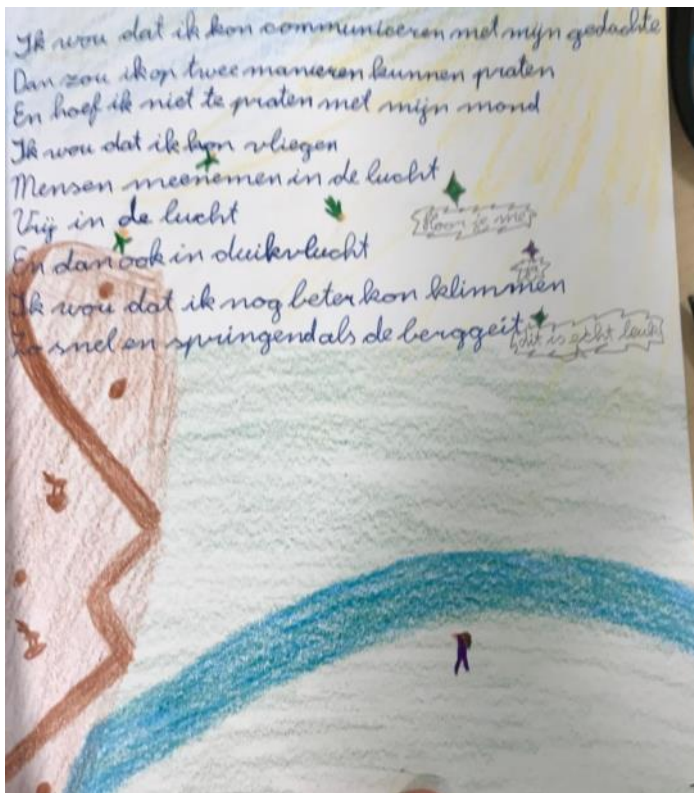 Ik wou dat ik kon communiceren met mijn gedachte
Dan zou ik op twee manieren kunnen praten
En hoef ik niet te praten met mijn mond
Ik wou dat ik kon vliegen
Mensen meenemen in de lucht
Vrij in de lucht
Hoor je me
En dan ook in duikvlucht
ja
Ik wou dat ik nog beter kon klimmen
Zo snel en springend als de berggeit
dit is echt leuk